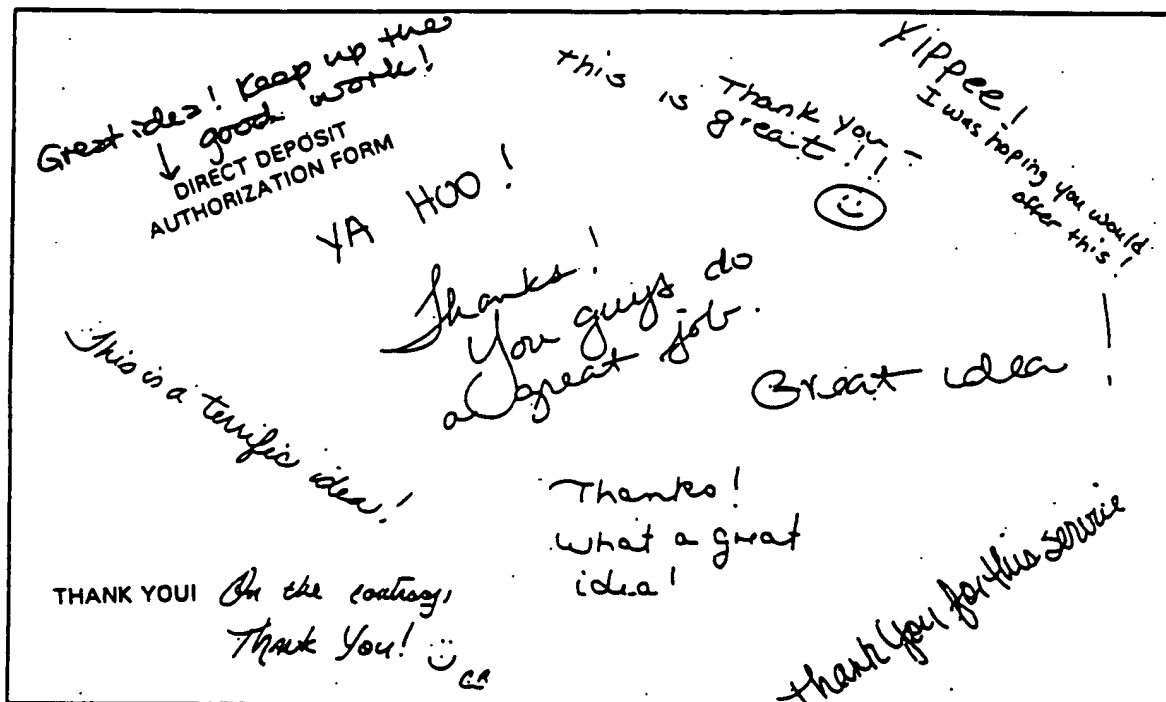 Great idea! Keep up the
good work!
DIRECT DEPOSIT
AUTHORIZATION FORM
YA HOO!
this is great!!
Thank you -
Yippee!
I was hoping you would
offer this!
Thanks!
You guys do
a great job.
Great idea!
This is a terrific idea!
Thanks!
What a great
idea!
THANK YOU! On the contrary,
Thank You!
CR
Thank you for this service